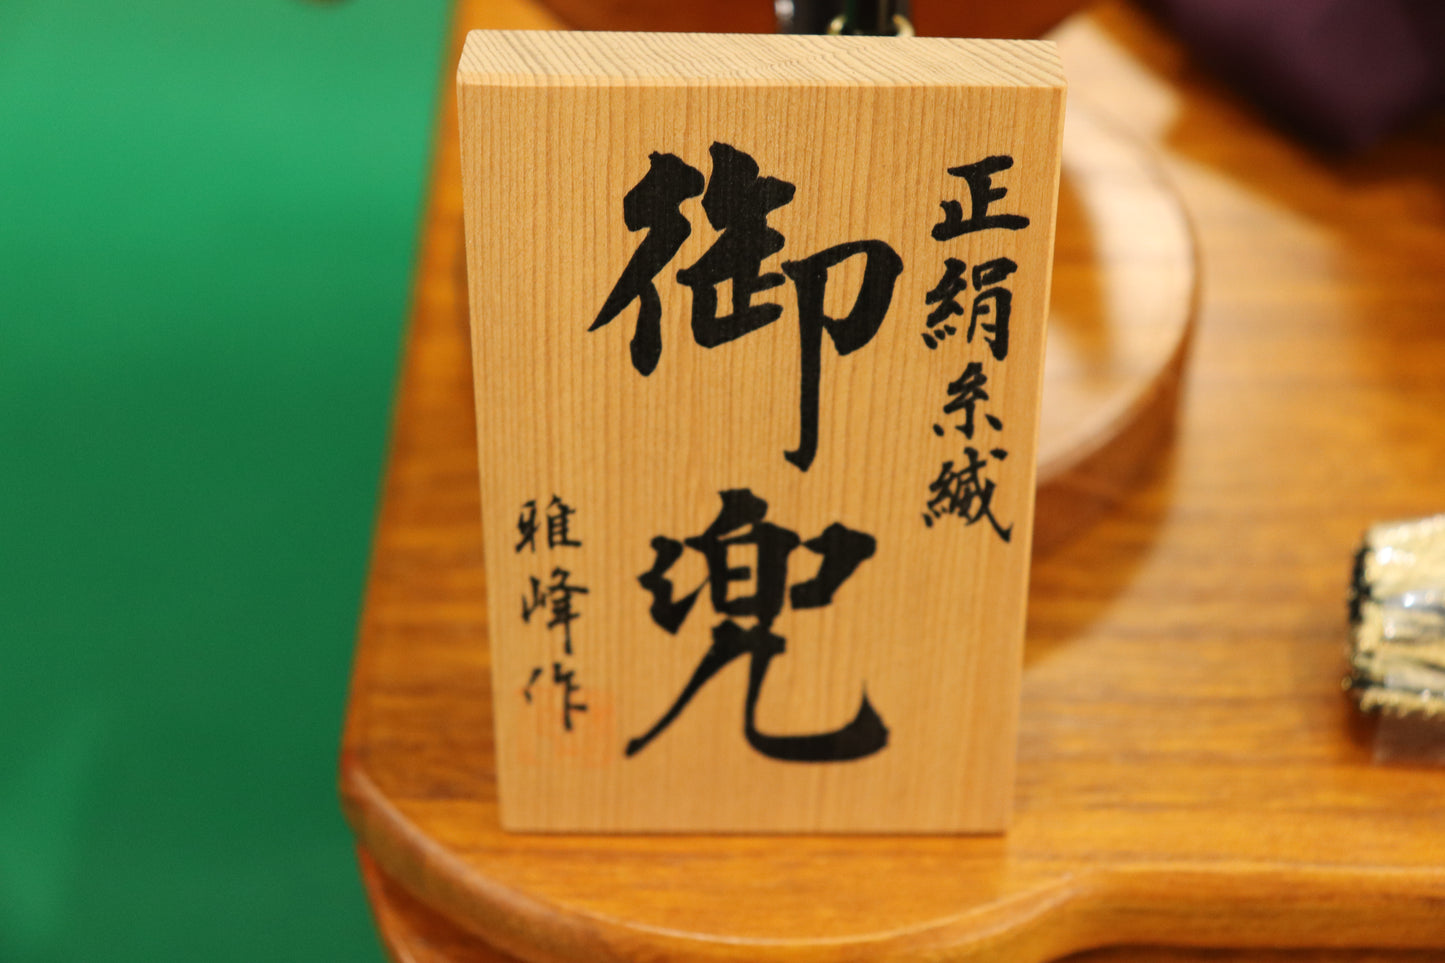 正絹糸縅
御兜
雅峰作